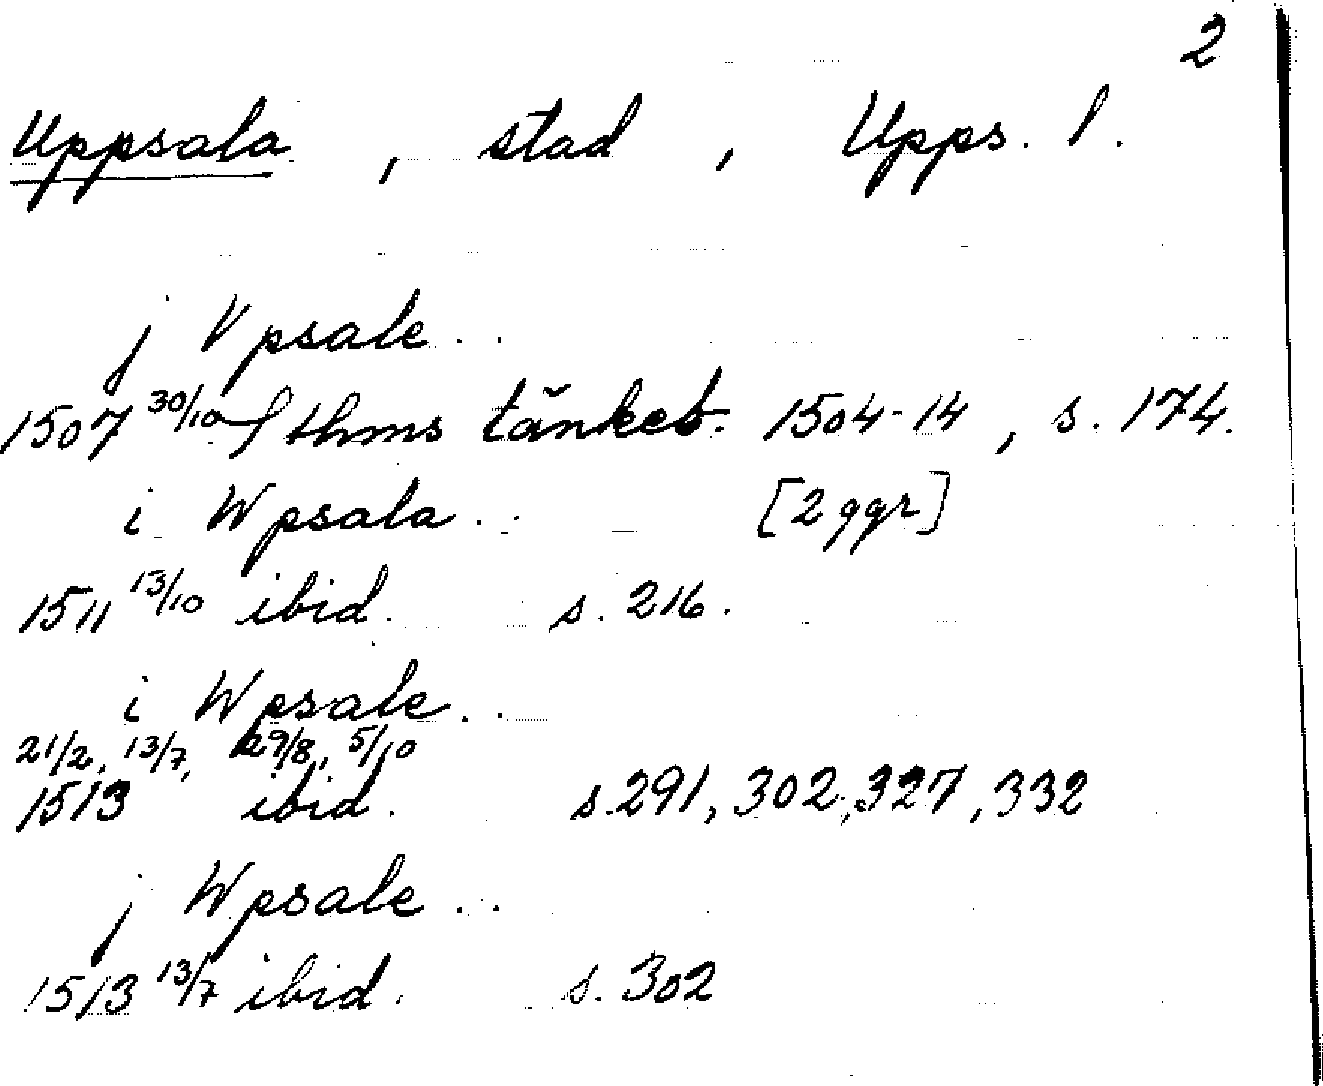 2
Uppsala, stad, Upps. l.
j Vpsale..
1507 30/10 Sthms tänkeb. 1504-14, s. 174.
i Wpsala.. [2 ggr]
1511 13/10 ibid. s. 216.
i Wpsale..
21/2, 13/7, 29/8, 5/10
1513 ibid. s. 291, 302, 327, 332
j Wpsale..
1513 13/7 ibid. s. 302